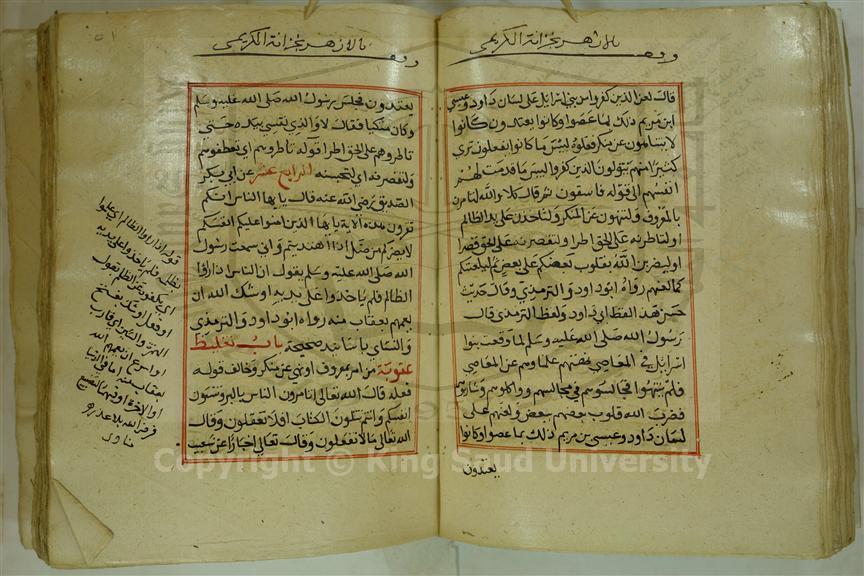 بالازهر بخزانة الكريمى
وقف
قال لعن الذين كفروا من بني اسرائل على لسان داود وعيسى
ابن مريم ذلك بما عصوا وكانوا يعتدون كانوا
لا يتناهون عن منكر فعلوه لبيس ما كانوا يفعلون تري
كثيرًا منهم يتولون الذين كفروا لبيس ما قدمت لهم
انفسهم الى قوله فاسقون ثم قال كلا والله لتامرن
بالمعروف ولتنهون عن المنكر ولتاخذن على يد الظالم
اولتاطرنه على الحق اطرا ولتقصرنه على الحق قصرا
اوليضربن الله بقلوب بعضكم على بعض ثم ليلعنكم
كما لعنهم رواه ابوداود والترمذي وقال حديث
حسن هذا لفظ ابي داود ولفظ الترمذي قال
رسول الله صلى الله عليه وسلم لما وقعت بنوا
اسرائل في المعاصي فنهتهم علماوهم عن المعاصي
فلم ينتهوا فجالسوهم في مجالسهم وواكلوهم وشاربوهم
فضرب الله قلوب بعضهم ببعض ولعنهم على
لسان داود وعيسى بن مريم ذلك بما عصوا وكانوا
يعتدون
بالازهر بخزانة الكريمى
وقف
يعتدون فجلس رسول الله صلى الله عليه وسلم
وكان متكيا فقال لا والذي نفسي بيده حتى
تاطروهم على الحق اطرا قوله تاطروهم اي تعطفوهم
ولتقصرنه اي لتحبسنه الرابع عشر عن ابي بكر
الصديق رضى الله عنه قال يا ايها الناس انكم
تقرون هذه الاية يا ايها الذين امنوا عليكم انفسكم
لا يضركم من ضل اذا اهتديتم واني سمعت رسول
الله صلى الله عليه وسلم يقول ان الناس اذا راوا
الظالم فلم ياخذوا على يديه اوشك الله ان
يعمهم بعقاب منه رواه ابوداود والترمذى
والنساي باسانيد صحيحة باب تغليظ
عقوبة من امر بمعروف اونهى عن منكر وخالف قوله
فعله قال الله تعالى اتامرون الناس بالبر وتنسون
انفسكم وانتم تتلون الكتاب افلا تعقلون وقال
الله تعالى مالا تفعلون وقال تعالى اخبارًا عن شعيب
قوله اذا راوا الظالم اي علموا
بظلمه فلم ياخذوا على يديه
اي يكفوه عن الظلم بقول
او فعل اوشك بفتح
الهمزة والشين اي قارب
او اسرع ان يعمهم الله
بعقاب منه اما في الدنيا
او الاخرة او فيهما لتضييع
فرض الله بلا عذر
مناوى
Copyright © King Saud University